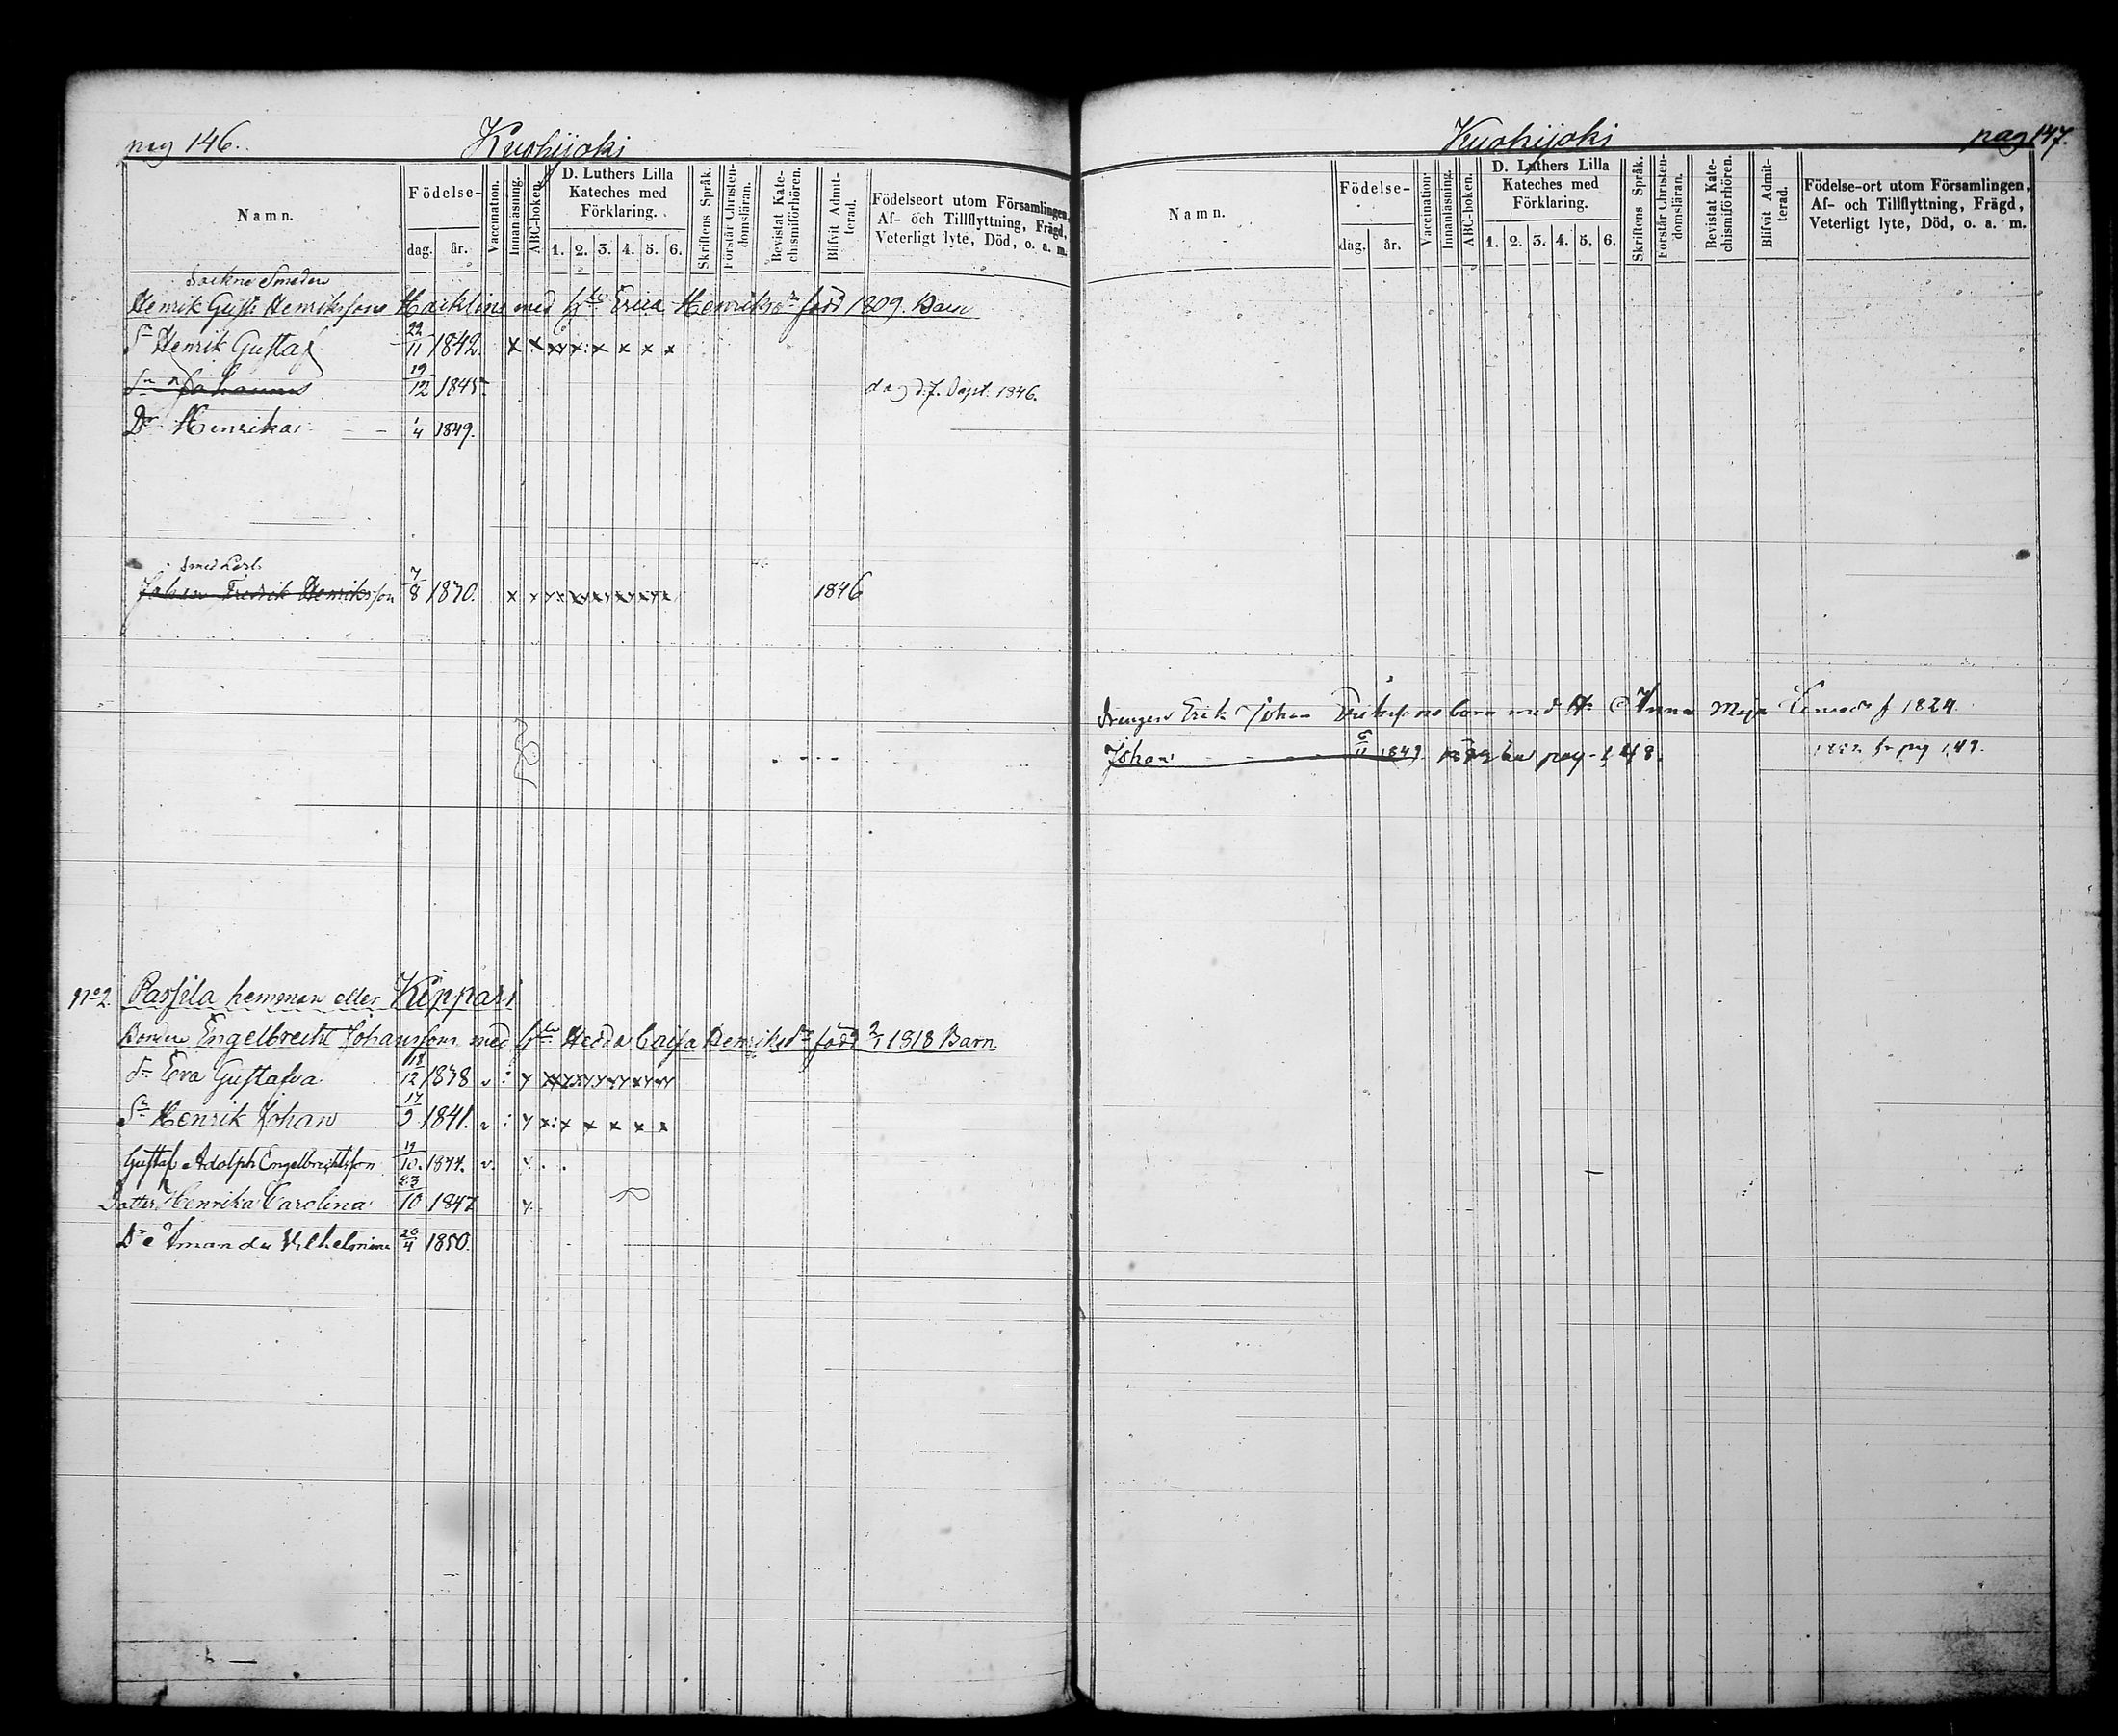 pag 146.
Kuohijoki
Namn.
Födelse-
dag.
år.
Vaccination.
Innanläsning.
ABC-boken.
D. Luthers Lilla
Kateches med
Förklaring.
1. 2. 3. 4. 5. 6.
Skriftens Språk.
Förstår Christen-
domsläran.
Bevistat Kate-
chismiförhören.
Blifvit Admit-
terad.
Födelseort utom Församlingen,
Af- och Tillflyttning, Frägd,
Veterligt lyte, Död, o. a. m.
Sockne Smeden
Henrik Gust: Henrikssons Hacklins med h:ru Erica Henriksdr född 1809. Barn
Sn Henrik Gustaf 22/11 1842. x x xx x x x x x
Sn Johannes 19/12 1845 död d. 7. Sept. 1846.
Dr Henrika 1/4 1849.
Smed Lärl.
Johan Fredrik Henriksson 7/8 1830. x 1846
No 2. Passila hemman eller Kippari
Bonden Engelbrecht Johanssons med h:ru Hedda Caisa Henriksdr född 2/1 1818 Barn
Dr Eva Gustafva 18/12 1838 v
Sn Henrik Johan 17/9 1841. v
Gustaf Adolph Engelbrechtsson 19/10. 1844. v.
Dotter Henrika Carolina 23/10 1847
Dr Amanda Vilhelmina 20/4 1850.
Kuohijoki
pag 147.
Namn.
Födelse-
dag.
år.
Vaccination.
Innanläsning.
ABC-boken.
D. Luthers Lilla
Kateches med
Förklaring.
1. 2. 3. 4. 5. 6.
Skriftens Språk.
Förstår Christen-
domsläran.
Bevistat Kate-
chismiförhören.
Blifvit Admit-
terad.
Födelse-ort utom Församlingen,
Af- och Tillflyttning, Frägd,
Veterligt lyte, Död, o. a. m.
Drengen Erik Johan Erikssons barn med h: Anna Maja f 1824.
Johan 6/11 1849 pag 148. pag 149.